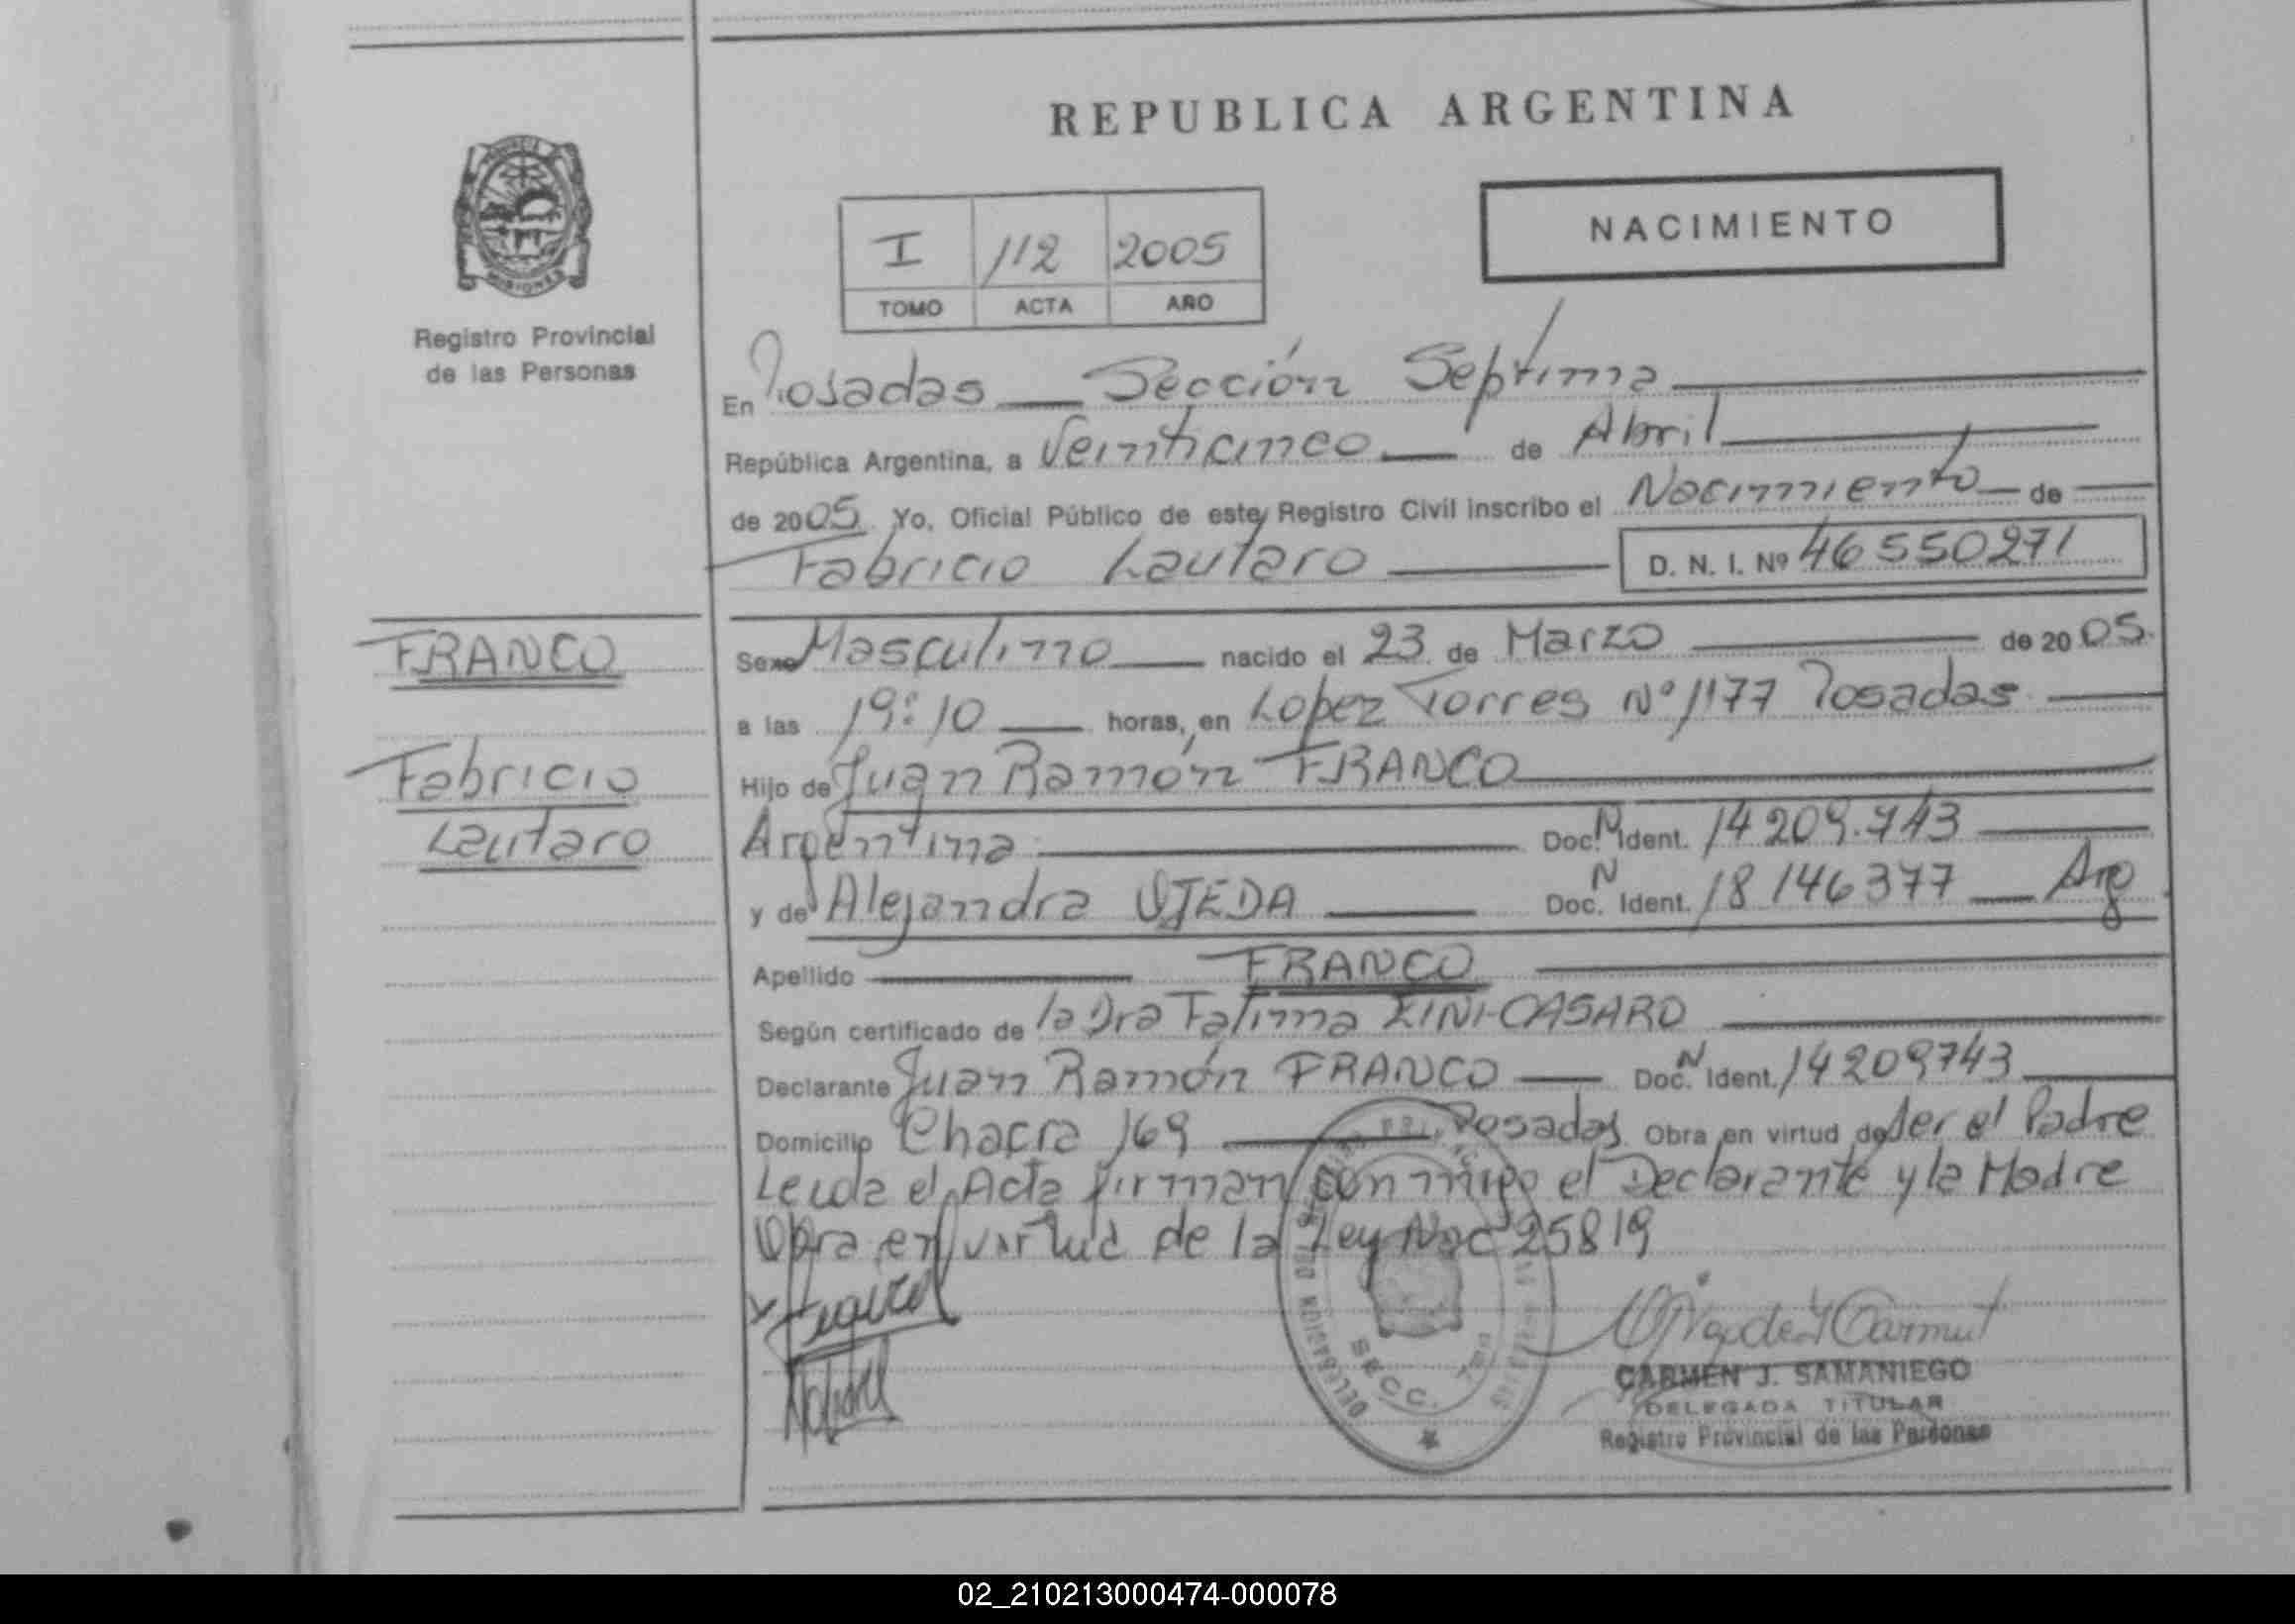 REPUBLICA ARGENTINA
NACIMIENTO
I 112 2005
TOMO ACTA AÑO
Registro Provincial
de las Personas
En Posadas — Sección Septima
República Argentina, a Veinticinco — de Abril
de 2005. Yo, Oficial Público de este Registro Civil inscribo el Nacimiento — de
Fabricio Lautaro — D. N. I. Nº 46550271
FRANCO
Fabricio
Lautaro
Sexo Masculino — nacido el 23 de Marzo — de 2005.
a las 19:10 — horas, en Lopez Torres Nº 1177 Posadas.
Hijo de Juan Ramón FRANCO
Argentina — Doc. N Ident. 14209.743
y de Alejandra OJEDA — Doc. N Ident. 18146377 — Arg.
Apellido — FRANCO
Según certificado de la Dra Fatima ZINI-CASARO
Declarante Juan Ramón FRANCO — Doc. N Ident. 14209743
Domicilio Chacra 169 — Posadas Obra en virtud de Ser el Padre
Leida el Acta firman conmigo el Declarante y la Madre
Obra en virtud de la Ley Nac 25819
SECC. 7ma
DELEGACION
CARMEN J. SAMANIEGO
DELEGADA TITULAR
Registro Provincial de las Personas
02_210213000474-000078